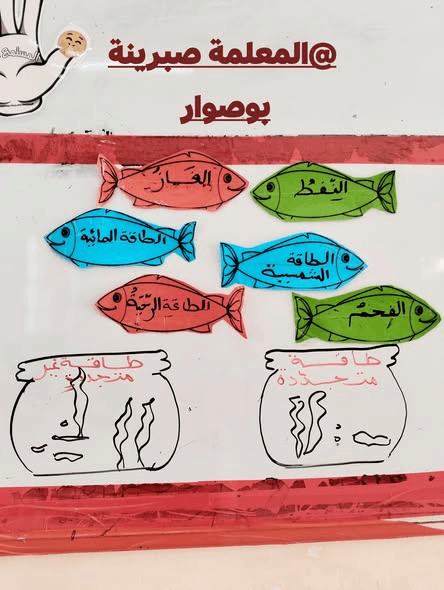 @المعلمة صبرينة
بوصوار
المستمع
الغاز
النفط
الطاقة المائية
الطاقة
الشمسية
الطاقة الريحية
الفحم
طاقة
متجددة
طاقة غير
متجددة